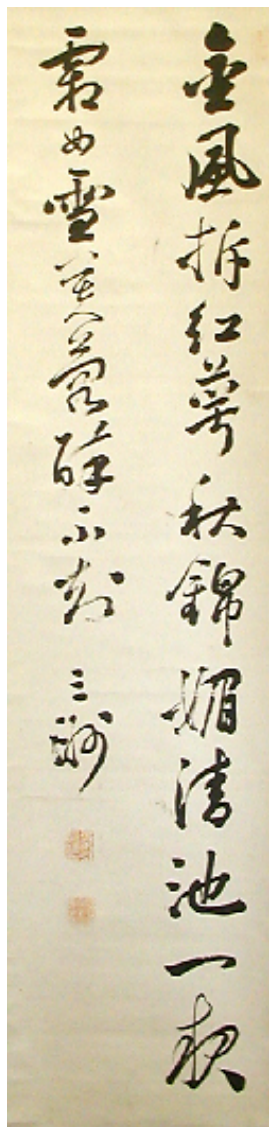 金風拆紅萼秋錦媚清池一夜
霜如雪芙蓉醉不知
三洲